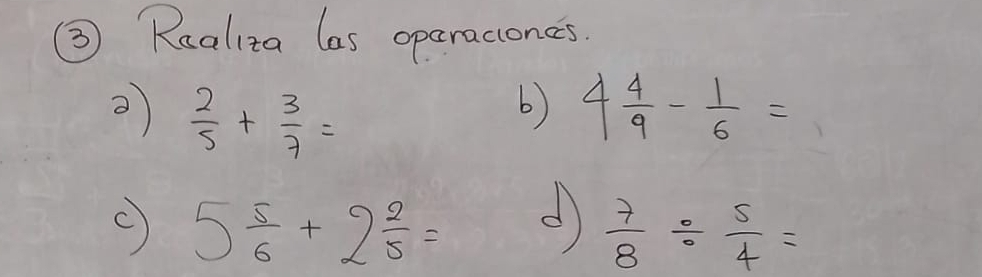 ③ Realiza las operaciones.
a) 2/5 + 3/7 = b) 4 4/9 - 1/6 =
c) 5 5/6 + 2 2/5 = d) 7/8 ÷ 5/4 =